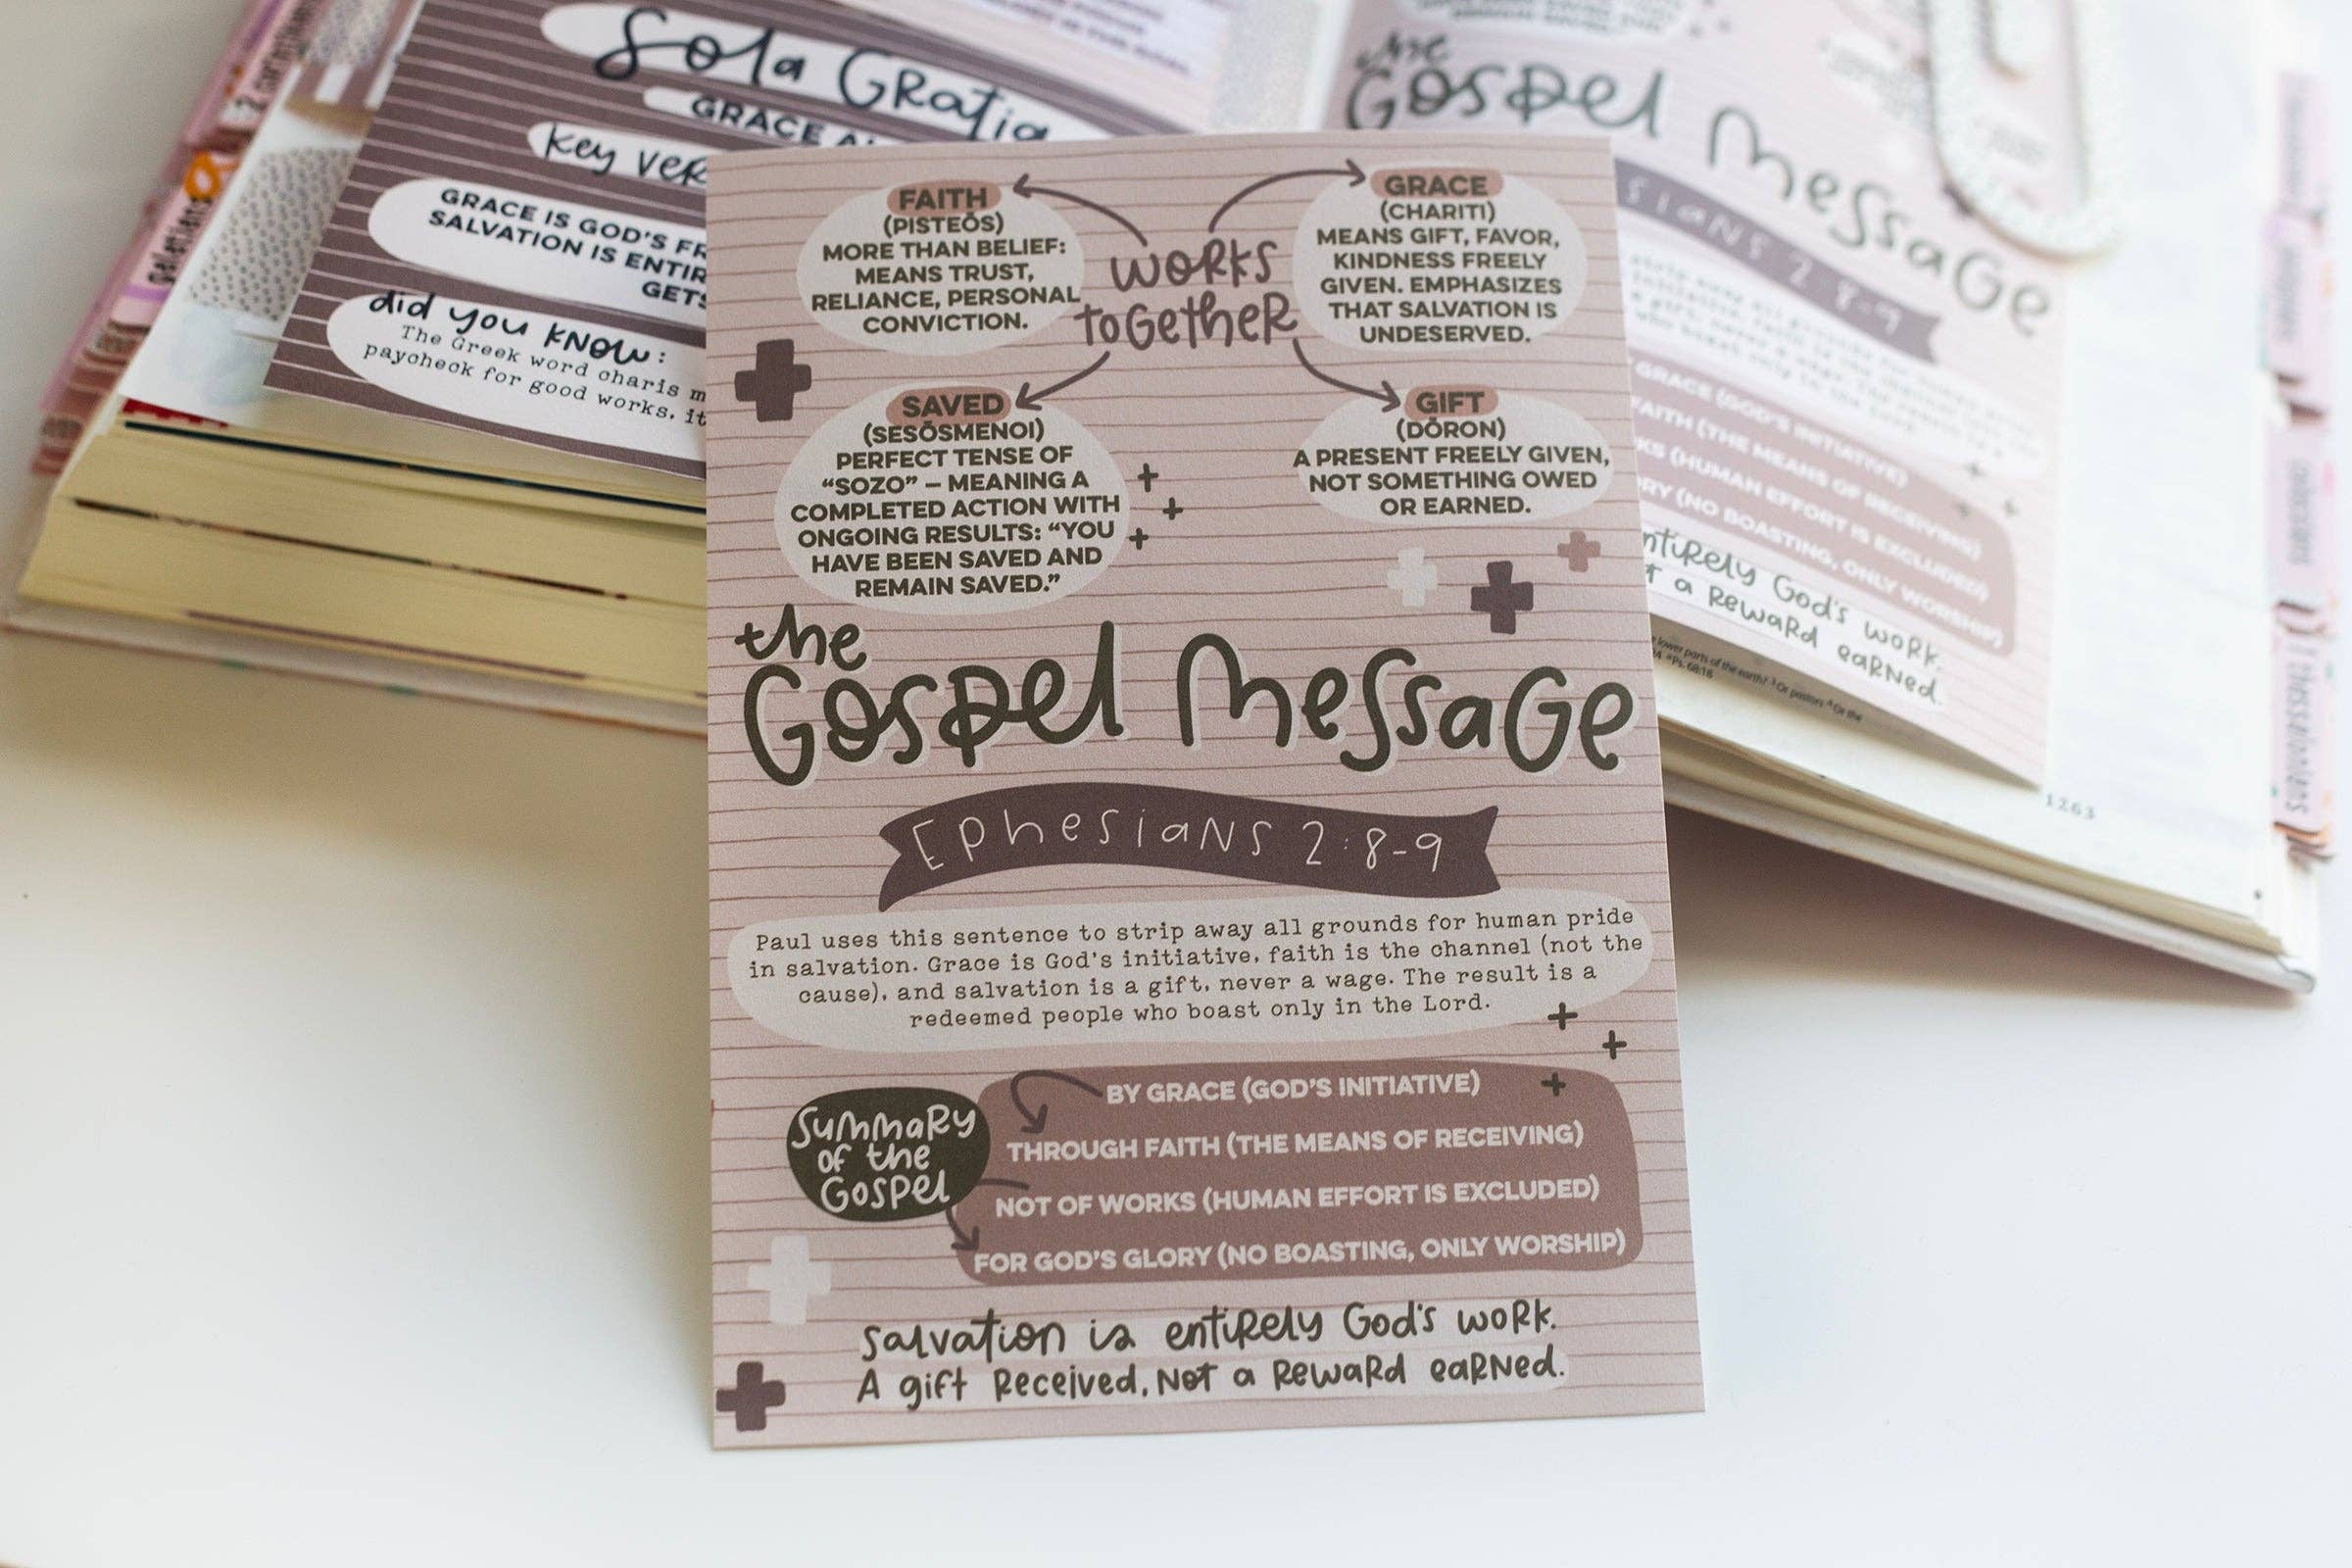 Sola Gratia
GRACE
key
GRACE IS GOD'S
SALVATION IS
did you know:
The Greek word charis
paycheck for good works, it
galatians
the
Gospel Message
2 8-9
GRACE (GOD'S INITIATIVE)
(THE MEANS OF RECEIVING)
(HUMAN EFFORT IS EXCLUDED)
(NO BOASTING, ONLY WORSHIP)
God's work.
a Reward earned.
lower parts of the earth? Or pastors Or the
Ps. 68:18
1263
FAITH
(PISTEŌS)
MORE THAN BELIEF:
MEANS TRUST,
RELIANCE, PERSONAL
CONVICTION.
works
together
GRACE
(CHARITI)
MEANS GIFT, FAVOR,
KINDNESS FREELY
GIVEN. EMPHASIZES
THAT SALVATION IS
UNDESERVED.
SAVED
(SESŌSMENOI)
PERFECT TENSE OF
“SOZO” – MEANING A
COMPLETED ACTION WITH
ONGOING RESULTS: “YOU
HAVE BEEN SAVED AND
REMAIN SAVED.”
GIFT
(DŌRON)
A PRESENT FREELY GIVEN,
NOT SOMETHING OWED
OR EARNED.
the
Gospel Message
Ephesians 2:8-9
Paul uses this sentence to strip away all grounds for human pride
in salvation. Grace is God's initiative, faith is the channel (not the
cause), and salvation is a gift, never a wage. The result is a
redeemed people who boast only in the Lord.
Summary
of the
Gospel
BY GRACE (GOD'S INITIATIVE)
THROUGH FAITH (THE MEANS OF RECEIVING)
NOT OF WORKS (HUMAN EFFORT IS EXCLUDED)
FOR GOD'S GLORY (NO BOASTING, ONLY WORSHIP)
Salvation is entirely God's work.
A gift Received, Not a Reward earned.